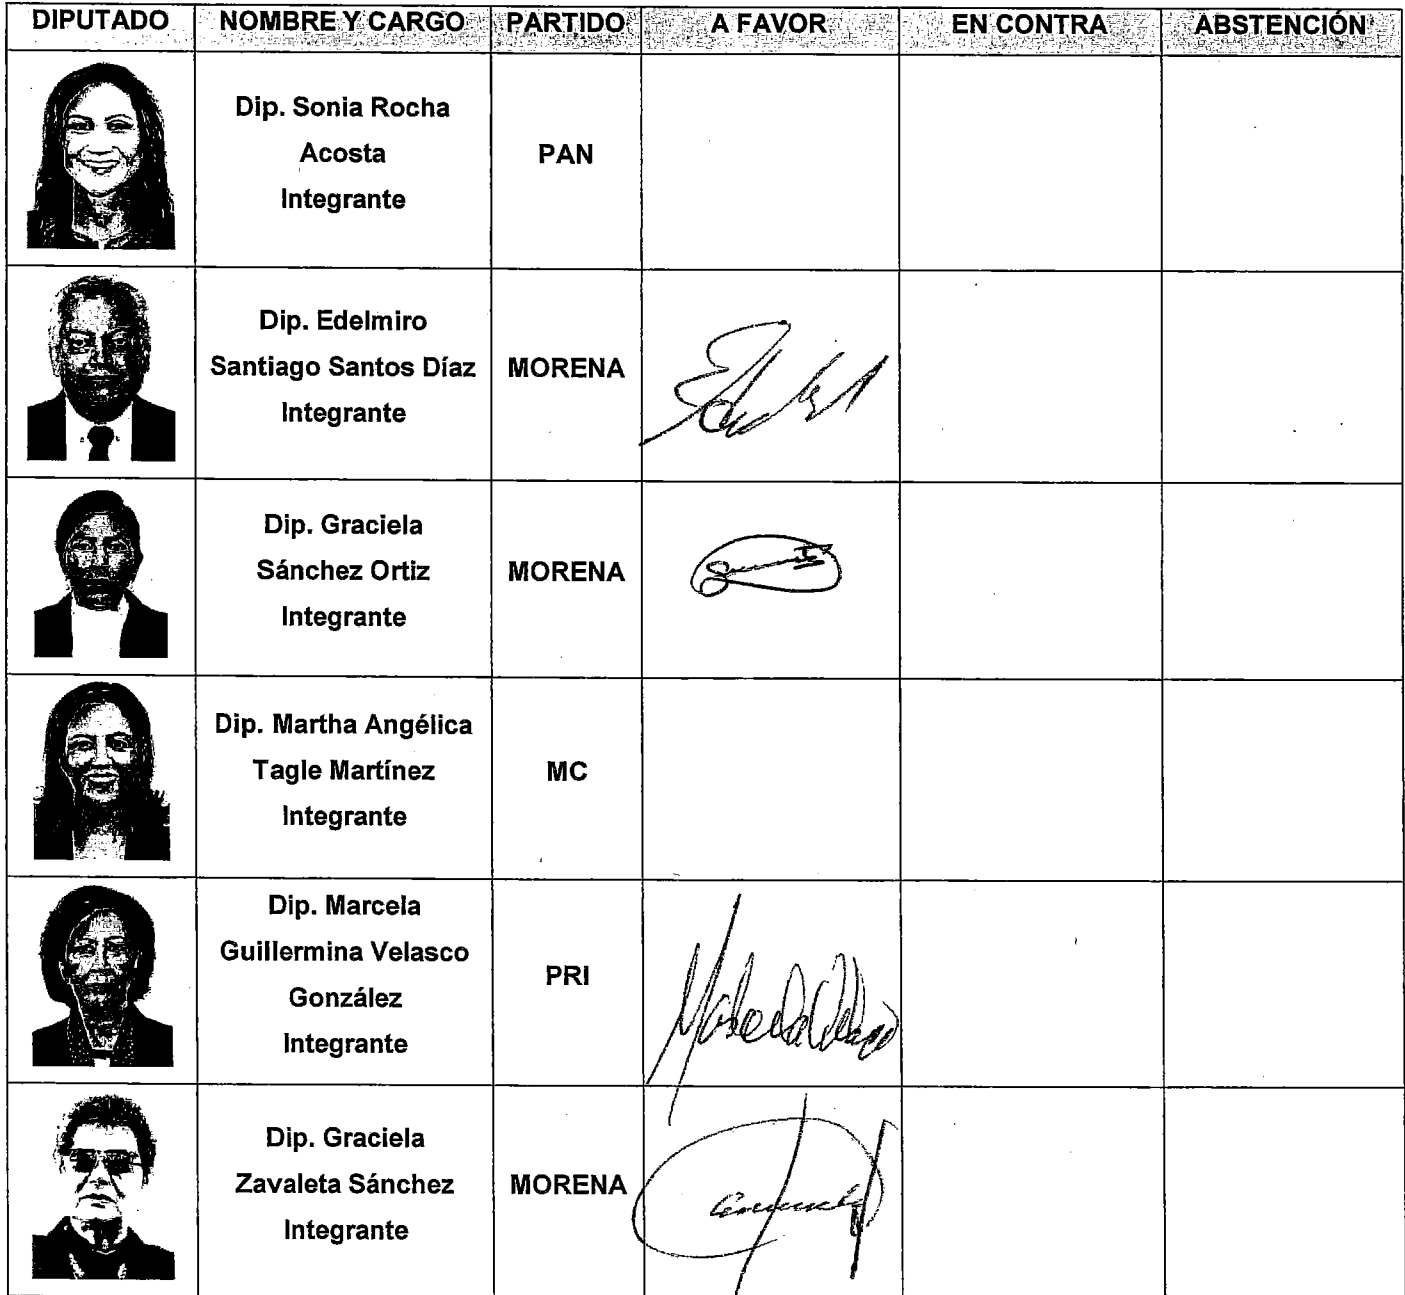 DIPUTADO NOMBRE Y CARGO PARTIDO A FAVOR EN CONTRA ABSTENCIÓN
Dip. Sonia Rocha
Acosta
Integrante
PAN
Dip. Edelmiro
Santiago Santos Díaz
Integrante
MORENA
Dip. Graciela
Sánchez Ortiz
Integrante
MORENA
Dip. Martha Angélica
Tagle Martínez
Integrante
MC
Dip. Marcela
Guillermina Velasco
González
Integrante
PRI
Dip. Graciela
Zavaleta Sánchez
Integrante
MORENA